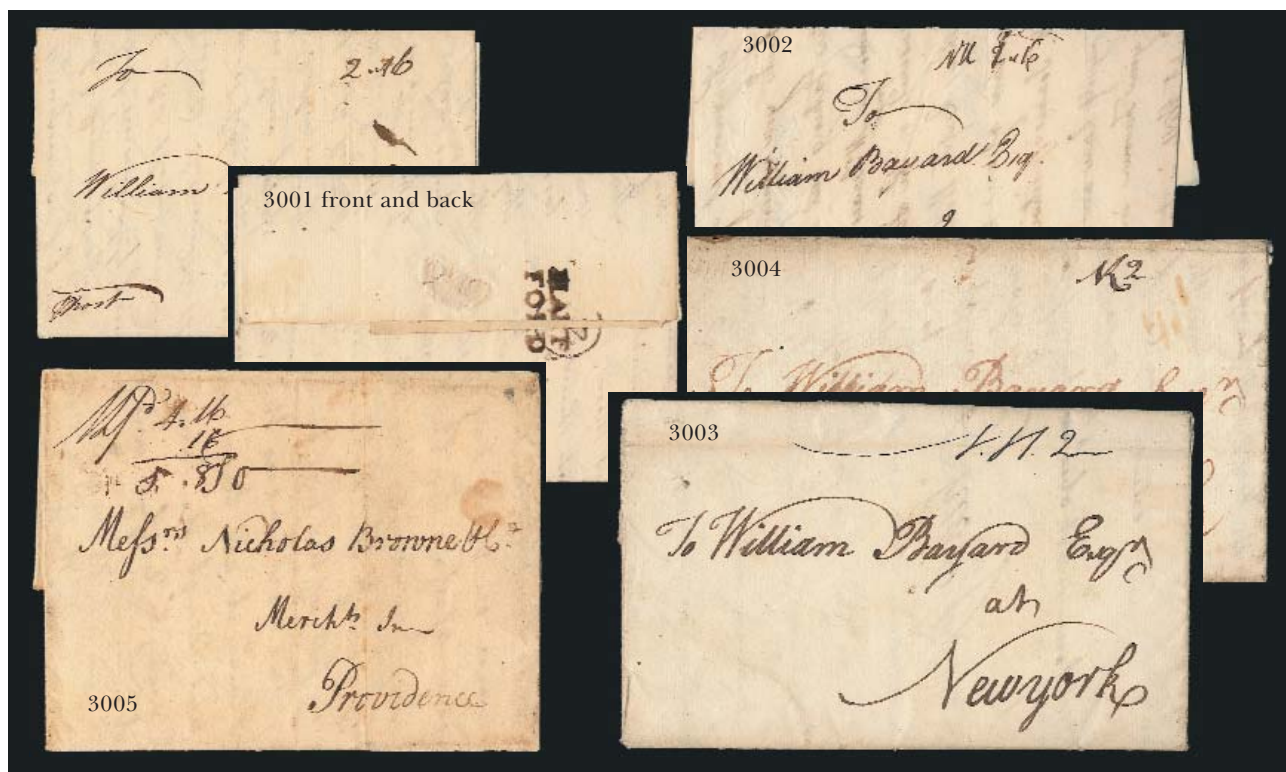 To
2.16
William
Post
3001 front and back
HARTFORD
3002
NY 2.16
To
William Bayard Esq.
3004
NY 2
To William Bayard Esqr
3005
4.16
16
5.8
Messrs Nicholas Browne & Co
Merchts In
Providence
3003
2
To William Bayard Esqr
at
Newyork